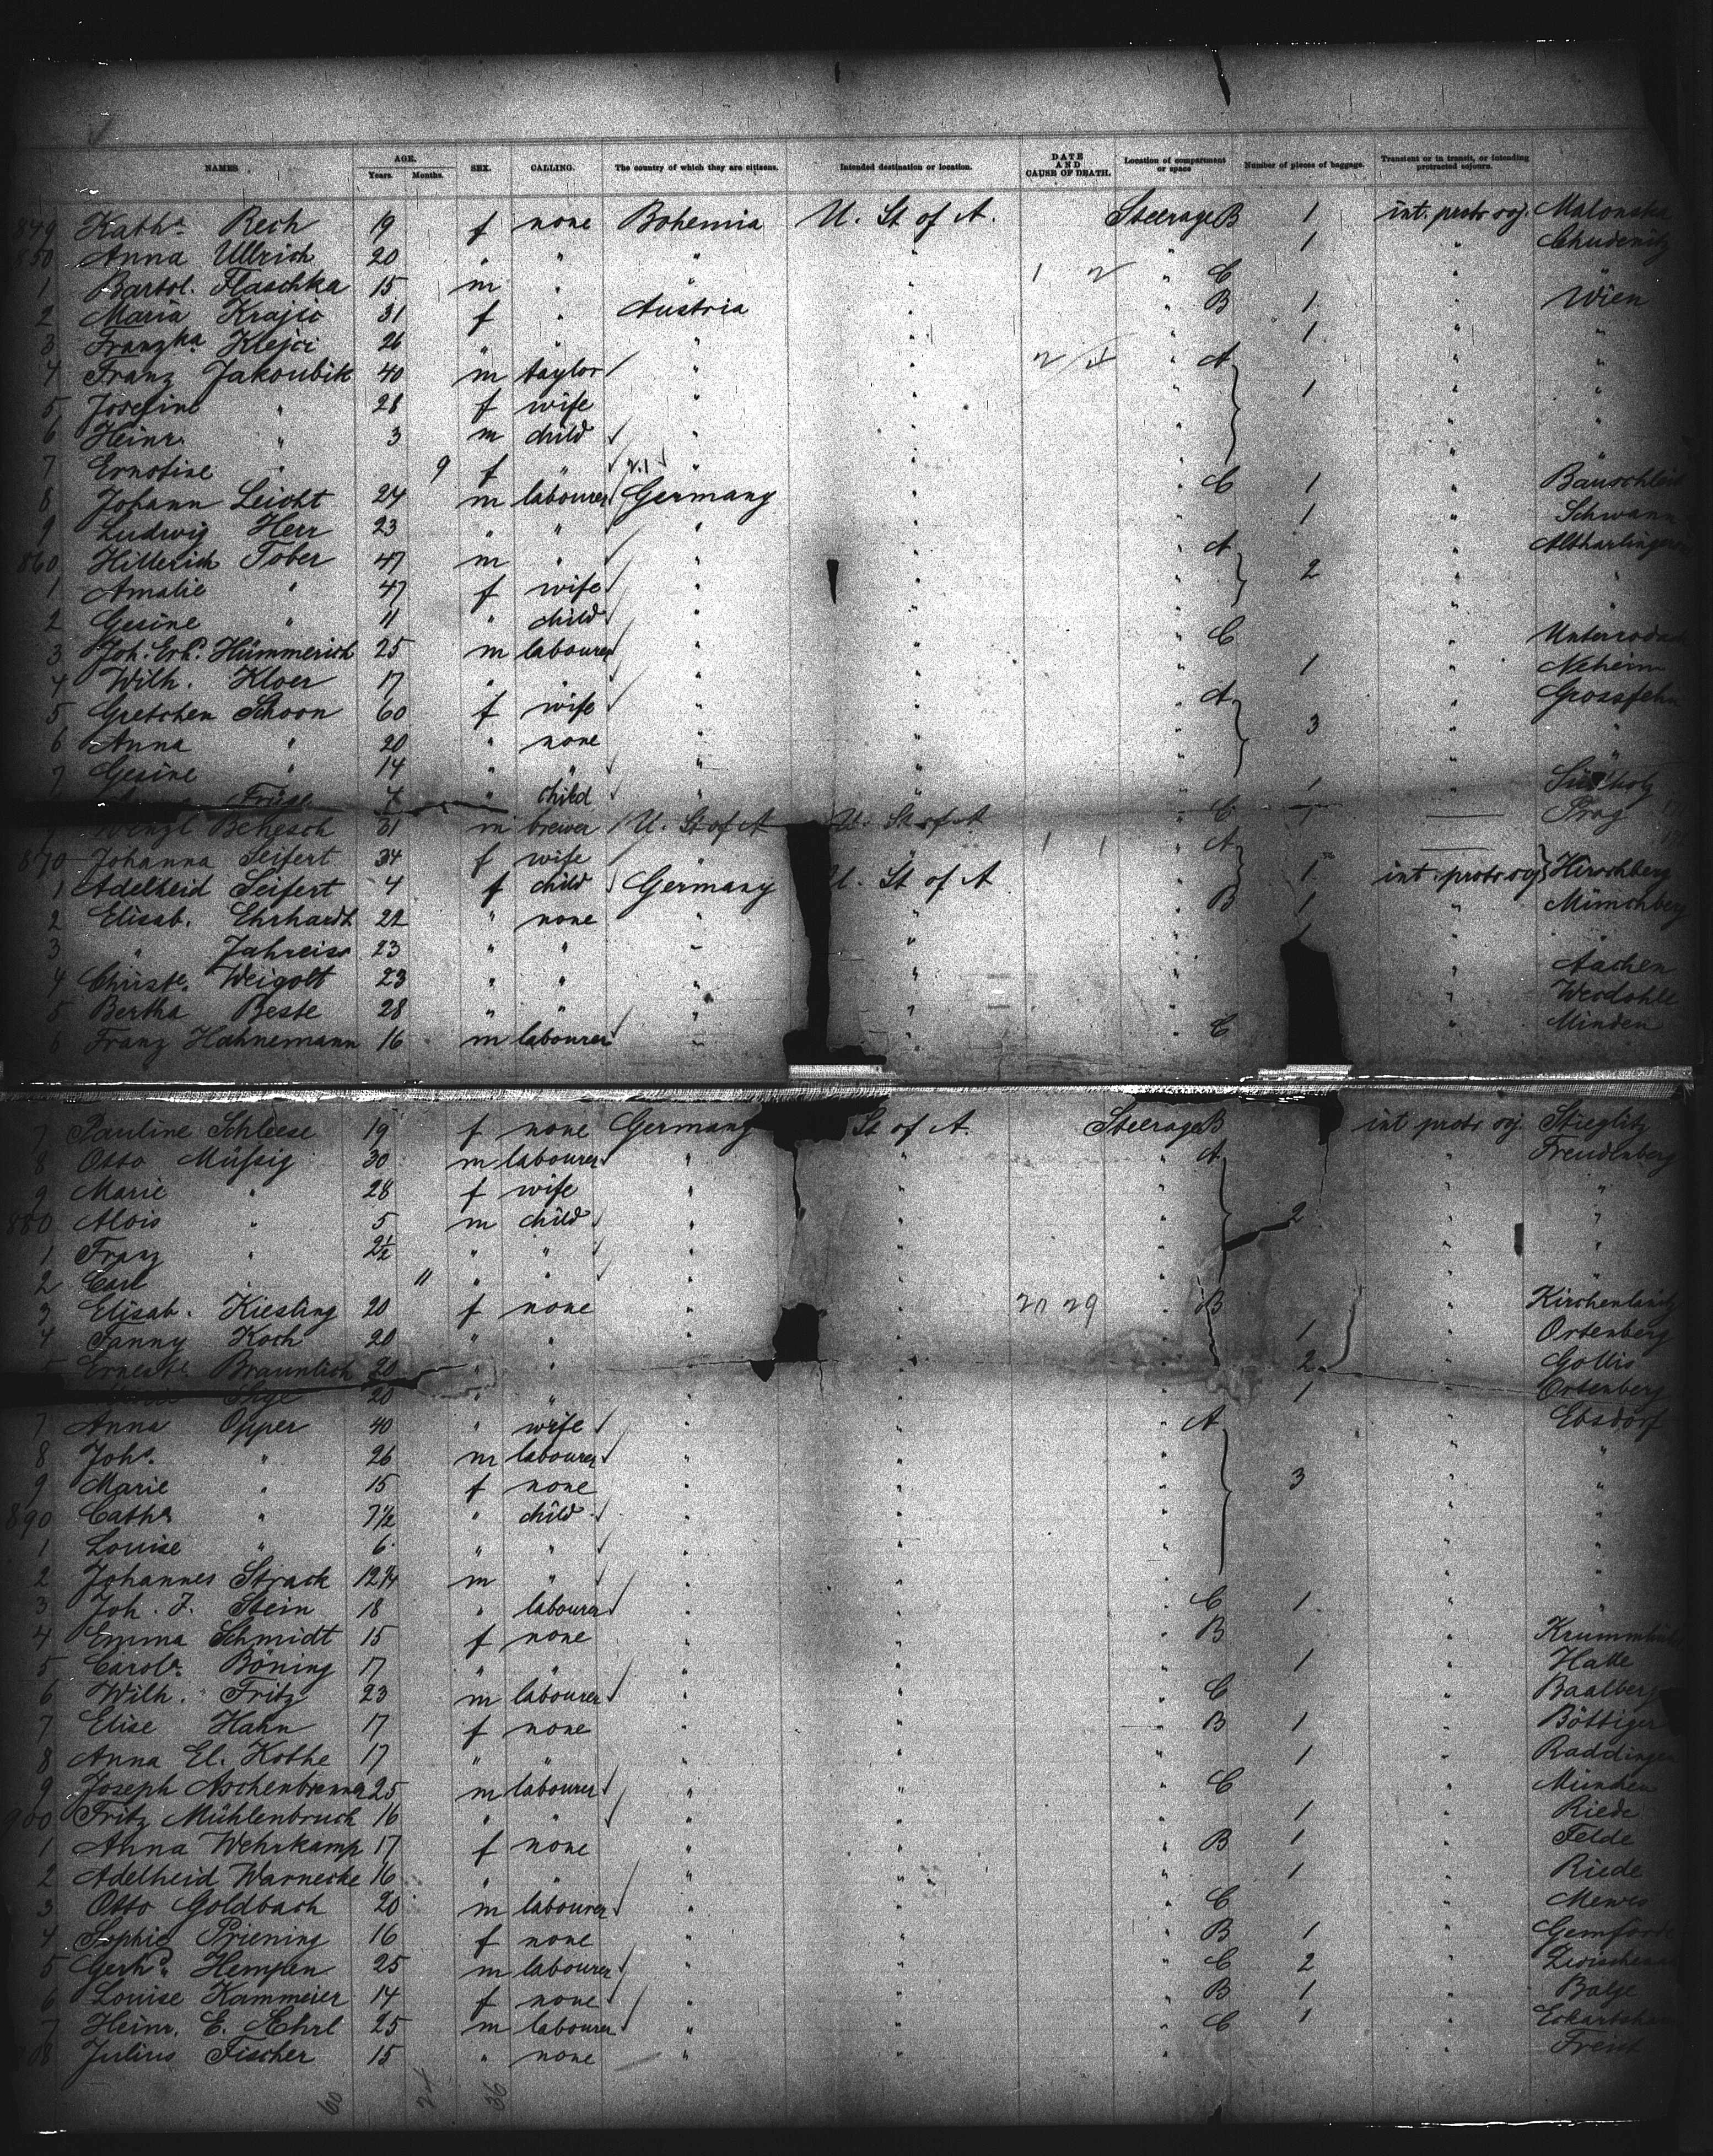 NAMES AGE. Years. Months. SEX. CALLING. The country of which they are citizens. Intended destination or location. DATE AND CAUSE OF DEATH. Location of compartment or space Number of pieces of baggage. Transient or in transit, or intending protracted sojourn.
849 Katha. Rech 19 f none Bohemia U. St of A. Steerage B 1 int. protr soj.
850 Anna Ullrich 20 " " " " 1 " Chudenitz
1 Bartol. Flaschka 15 m " " " 1 2 " C " "
2 Maria Krajic 31 f " Austria " " B 1 " Wien
3 Franzka. Klejci 26 " " " " " 1 " "
4 Franz Jakoubik 40 m taylor " " " A " "
5 Josefine " 28 f wife " " " 1 " "
6 Heinr. " 3 m child " " " " "
7 Ernstine " 9 f " " " " " "
8 Johann Leicht 24 m labourer Germany " " C 1 "
9 Ludwig Herr 23 " " " " " 1 " Schwann
860 Hillerich Tober 47 m " " " " A "
1 Amalie " 47 f wife " " " 2 " "
2 Gesine " 11 " child " " " " "
3 Joh. Erh. Hümmerich 25 m labourer " " " C "
4 Wilh. Kloer 17 " " " " " 1 " Neheim
5 Gretchen Schoon 60 f wife " " " A " Grossfehn
6 Anna " 20 " none " " " 3 " "
7 Gesine " 14 " " " " " " "
7 " child " " " 1 "
Wenzl Behesch 31 m brewer U. St of A U. St of A " C 1 Prag
870 Johanna Seifert 34 f wife " " 1 1 " A
1 Adelheid Seifert 4 f child Germany U. St of A " 1 int. protr soj Hirschberg
2 Elisab. Ehrhardt 22 " none " " " B 1 " Münchberg
3 " Jahreiss 23 " " " " " " "
4 Christe. Weigolt 23 " " " " " Aachen
5 Bertha Beste 28 " " " " " " Werdohle
6 Franz Hahnemann 16 m labourer " " " C " Minden
7 Pauline Schleese 19 f none Germany St of A. Steerage B int protr soj. Stieglitz
8 Otto Müssig 30 m labourer " " " A " Freudenberg
9 Marie " 28 f wife " " " " "
880 Alois " 5 m child " " " 2 " "
1 Franz " 2½ " " " " " " "
2 Carl 11 " " " " " " "
3 Elisab. Kiesling 20 f none " " 20 29 " B "
4 Fanny Koch 20 " " " " " 1 " Ortenberg
5 Erneste. Braunlich 20 " " " " " 2 " Gollis
20 " " " " " 1 " Ortenberg
7 Anna Opper 40 " wife " " " A " Ebsdorf
8 Johs. " 26 m labourer " " " " "
9 Marie " 15 f none " " " 3 " "
890 Catha " 7½ " child " " " " "
1 Louise " 6 " " " " " " "
2 Johannes Strack 12¼ m " " " " " "
3 Joh. J. Stein 18 " labourer " " " C 1 " "
4 Emma Schmidt 15 f none " " " B "
5 Carola. Böning 17 " " " " " 1 " Halle
6 Wilh. Fritz 23 m labourer " " " C " Baalberg
7 Elise Hahn 17 f none " " " B 1 "
8 Anna El. Kothe 17 " " " " " 1 " Raddingen
9 Joseph Aschenbrenner 25 m labourer " " " C " München
900 Fritz Mühlenbruch 16 " " " " " 1 " Riede
1 Anna Wehrkamp 17 f none " " " B 1 " Felde
2 Adelheid Warnecke 16 " " " " " 1 " Riede
3 Otto Goldbach 20 m labourer " " " C " Mewes
4 Sophie Priening 16 f none " " " B 1 "
5 Gerhd. Hempen 25 m labourer " " " C 2 "
6 Louise Kammeier 14 f none " " " B 1 " Balje
7 Heinr. E. Ehrl 25 m labourer " " " C 1 "
908 Julius Fischer 15 " none " " " "
60 24 36